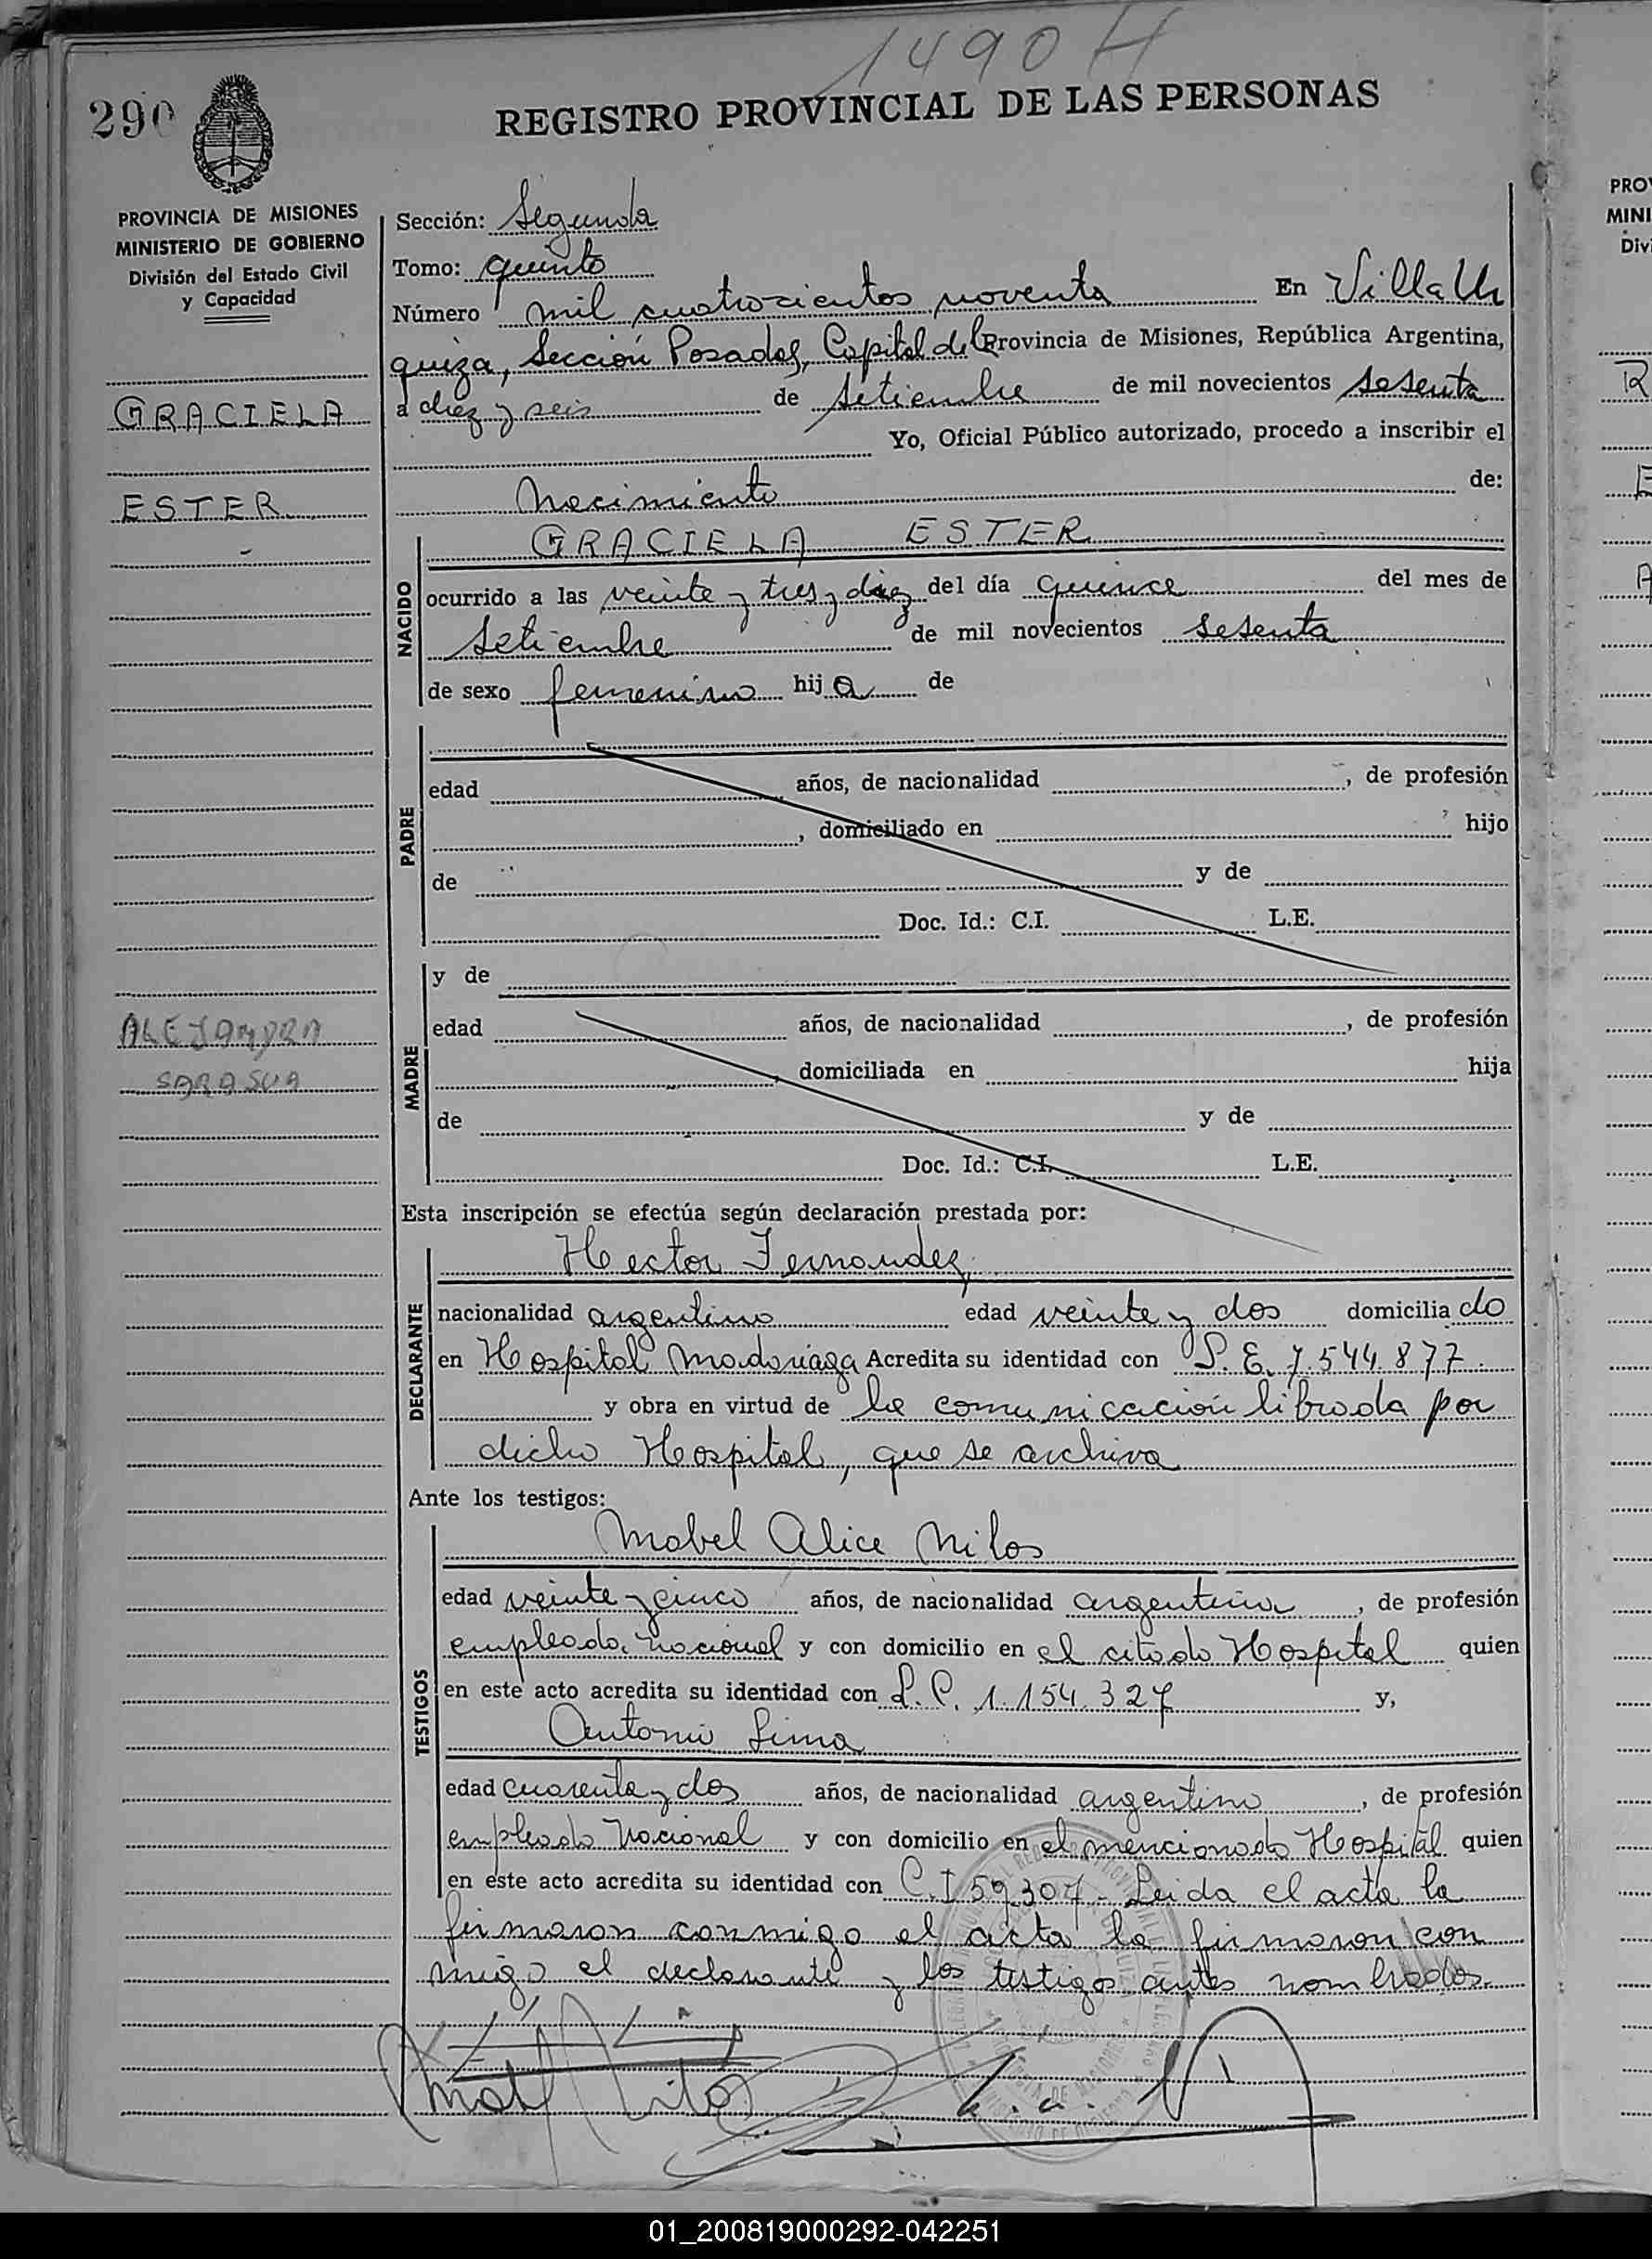 1490 H
290
REGISTRO PROVINCIAL DE LAS PERSONAS
PROVINCIA DE MISIONES
MINISTERIO DE GOBIERNO
División del Estado Civil
y Capacidad
GRACIELA
ESTER
ALEJANDRA
SARASUA
Sección: Segunda
Tomo: quinto
Número mil cuatrocientos noventa En Villa Ur
quiza, Sección Posadas, Capital de la Provincia de Misiones, República Argentina,
a diez y seis de Setiembre de mil novecientos sesenta
Yo, Oficial Público autorizado, procedo a inscribir el
Nacimiento de:
GRACIELA ESTER
NACIDO
ocurrido a las veinte y tres y diez del día quince del mes de
Setiembre de mil novecientos sesenta
de sexo femenino hija de
PADRE
edad años, de nacionalidad , de profesión
, domiciliado en hijo
de y de
Doc. Id.: C.I. L.E.
y de
MADRE
edad años, de nacionalidad , de profesión
, domiciliada en hija
de y de
Doc. Id.: C.I. L.E.
Esta inscripción se efectúa según declaración prestada por:
Hector Fernandez
DECLARANTE
nacionalidad argentino edad veinte y dos domiciliado
en Hospital Madariaga Acredita su identidad con L. E. 7.544.877
y obra en virtud de la comunicación librada por
dicho Hospital, que se archiva
Ante los testigos:
Mabel Alice Nilos
TESTIGOS
edad veinte y cinco años, de nacionalidad argentina, de profesión
empleada nacional y con domicilio en el citado Hospital quien
en este acto acredita su identidad con L. C. 1.154.327 y,
Antonio Lima
edad cuarenta y dos años, de nacionalidad argentino, de profesión
empleado Nacional y con domicilio en el mencionado Hospital quien
en este acto acredita su identidad con C.I 59307 - Leida el acta la
firmaron conmigo el acta la firmaron con
migo el declarante y los testigos antes nombrados.
PRO
MINI
Div
01_200819000292-042251